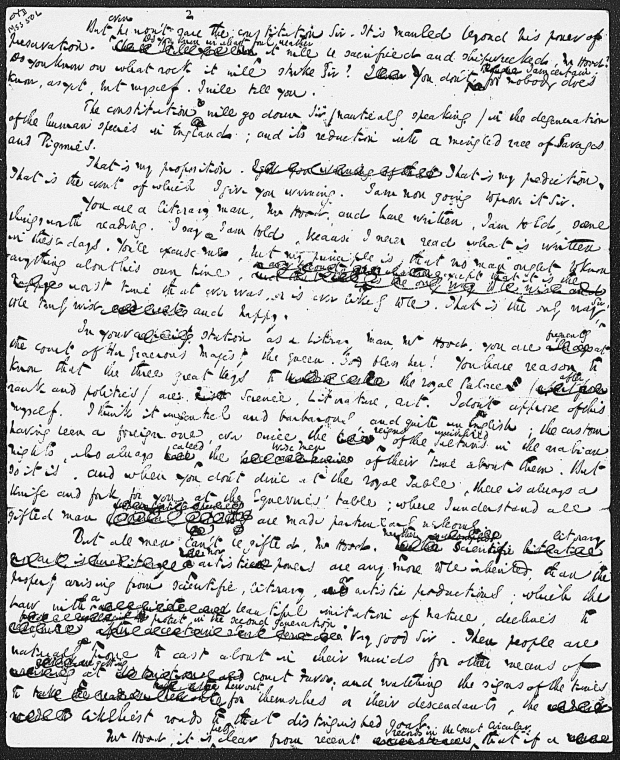 2
But even he won't save the constitution Sir. It is mauled beyond his power of
preservation. Do you know in what foul weather it will be sacrificed and shipwrecked, Mr Hood?
Do you know on what rock it will strike Sir? You don't, I am certain for nobody does
know, as yet, but myself. I will tell you.
The constitution will go down Sir (nautically speaking) in the degeneration
of the human species in England; and its reduction into a mingled race of Savages
and Pigmies.
That is my proposition. That is my prediction.
That is the event of which I give you warning. I am now going to prove it Sir.
You are a literary man, Mr Hood, and have written, I am told, some
things worth reading. I say I am told, because I never read what is written
in these days. You'll excuse me, but my principle is, that no man ought to know
anything about his own time except that it is the
worst time that ever was, or is ever likely to be. That is the only way Sir
to be truly wise and happy.
In your station as a literary man Mr Hood, you are frequently at
the court of Her gracious Majesty the Queen. God bless her! You have reason to
know that the three great keys to the royal Palace (after
rank and politics) are Science Literature, art. I don't approve of this
myself. I think it ungenteel and barbarous, and quite un English; the custom
having been a foreign one, ever since the reigns of the uncivilized Sultans in the arabian
nights, who always called the wise men of their time about them. But
so it is. and when you don't dine at the royal table, there is always a
knife and fork for you at the Equerries' table; where I understand all
gifted men are made particularly welcome.
But all men can't be gifted, Mr Hood. Neither scientific literary
nor artistic powers are any more to be inherited, than the
property arising from scientific, literary, or artistic productions; which the
law with a beautiful imitation of nature, declines to
protect in the second generation. Very good Sir. Then people are
naturally prone to cast about in their minds for other means of
getting at court favor; and watching the signs of the times
to hew out for themselves or their descendants, the
likeliest roads to that distinguished goal.
Mr Hood, it is pretty clear from recent records in the Court Circular, that if a